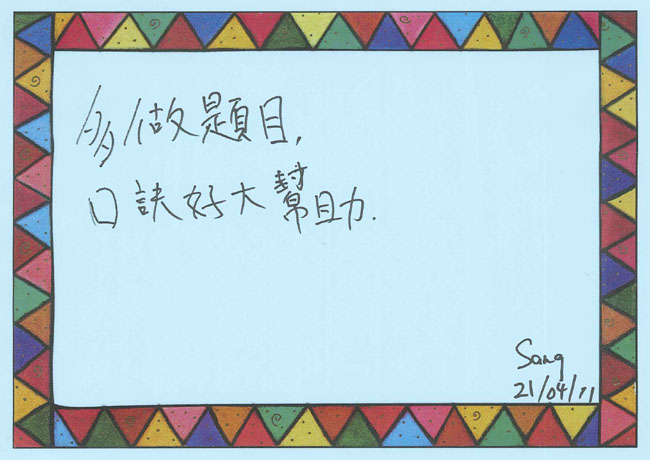 多做題目,
口訣好大幫助.
Sang
21/04/11